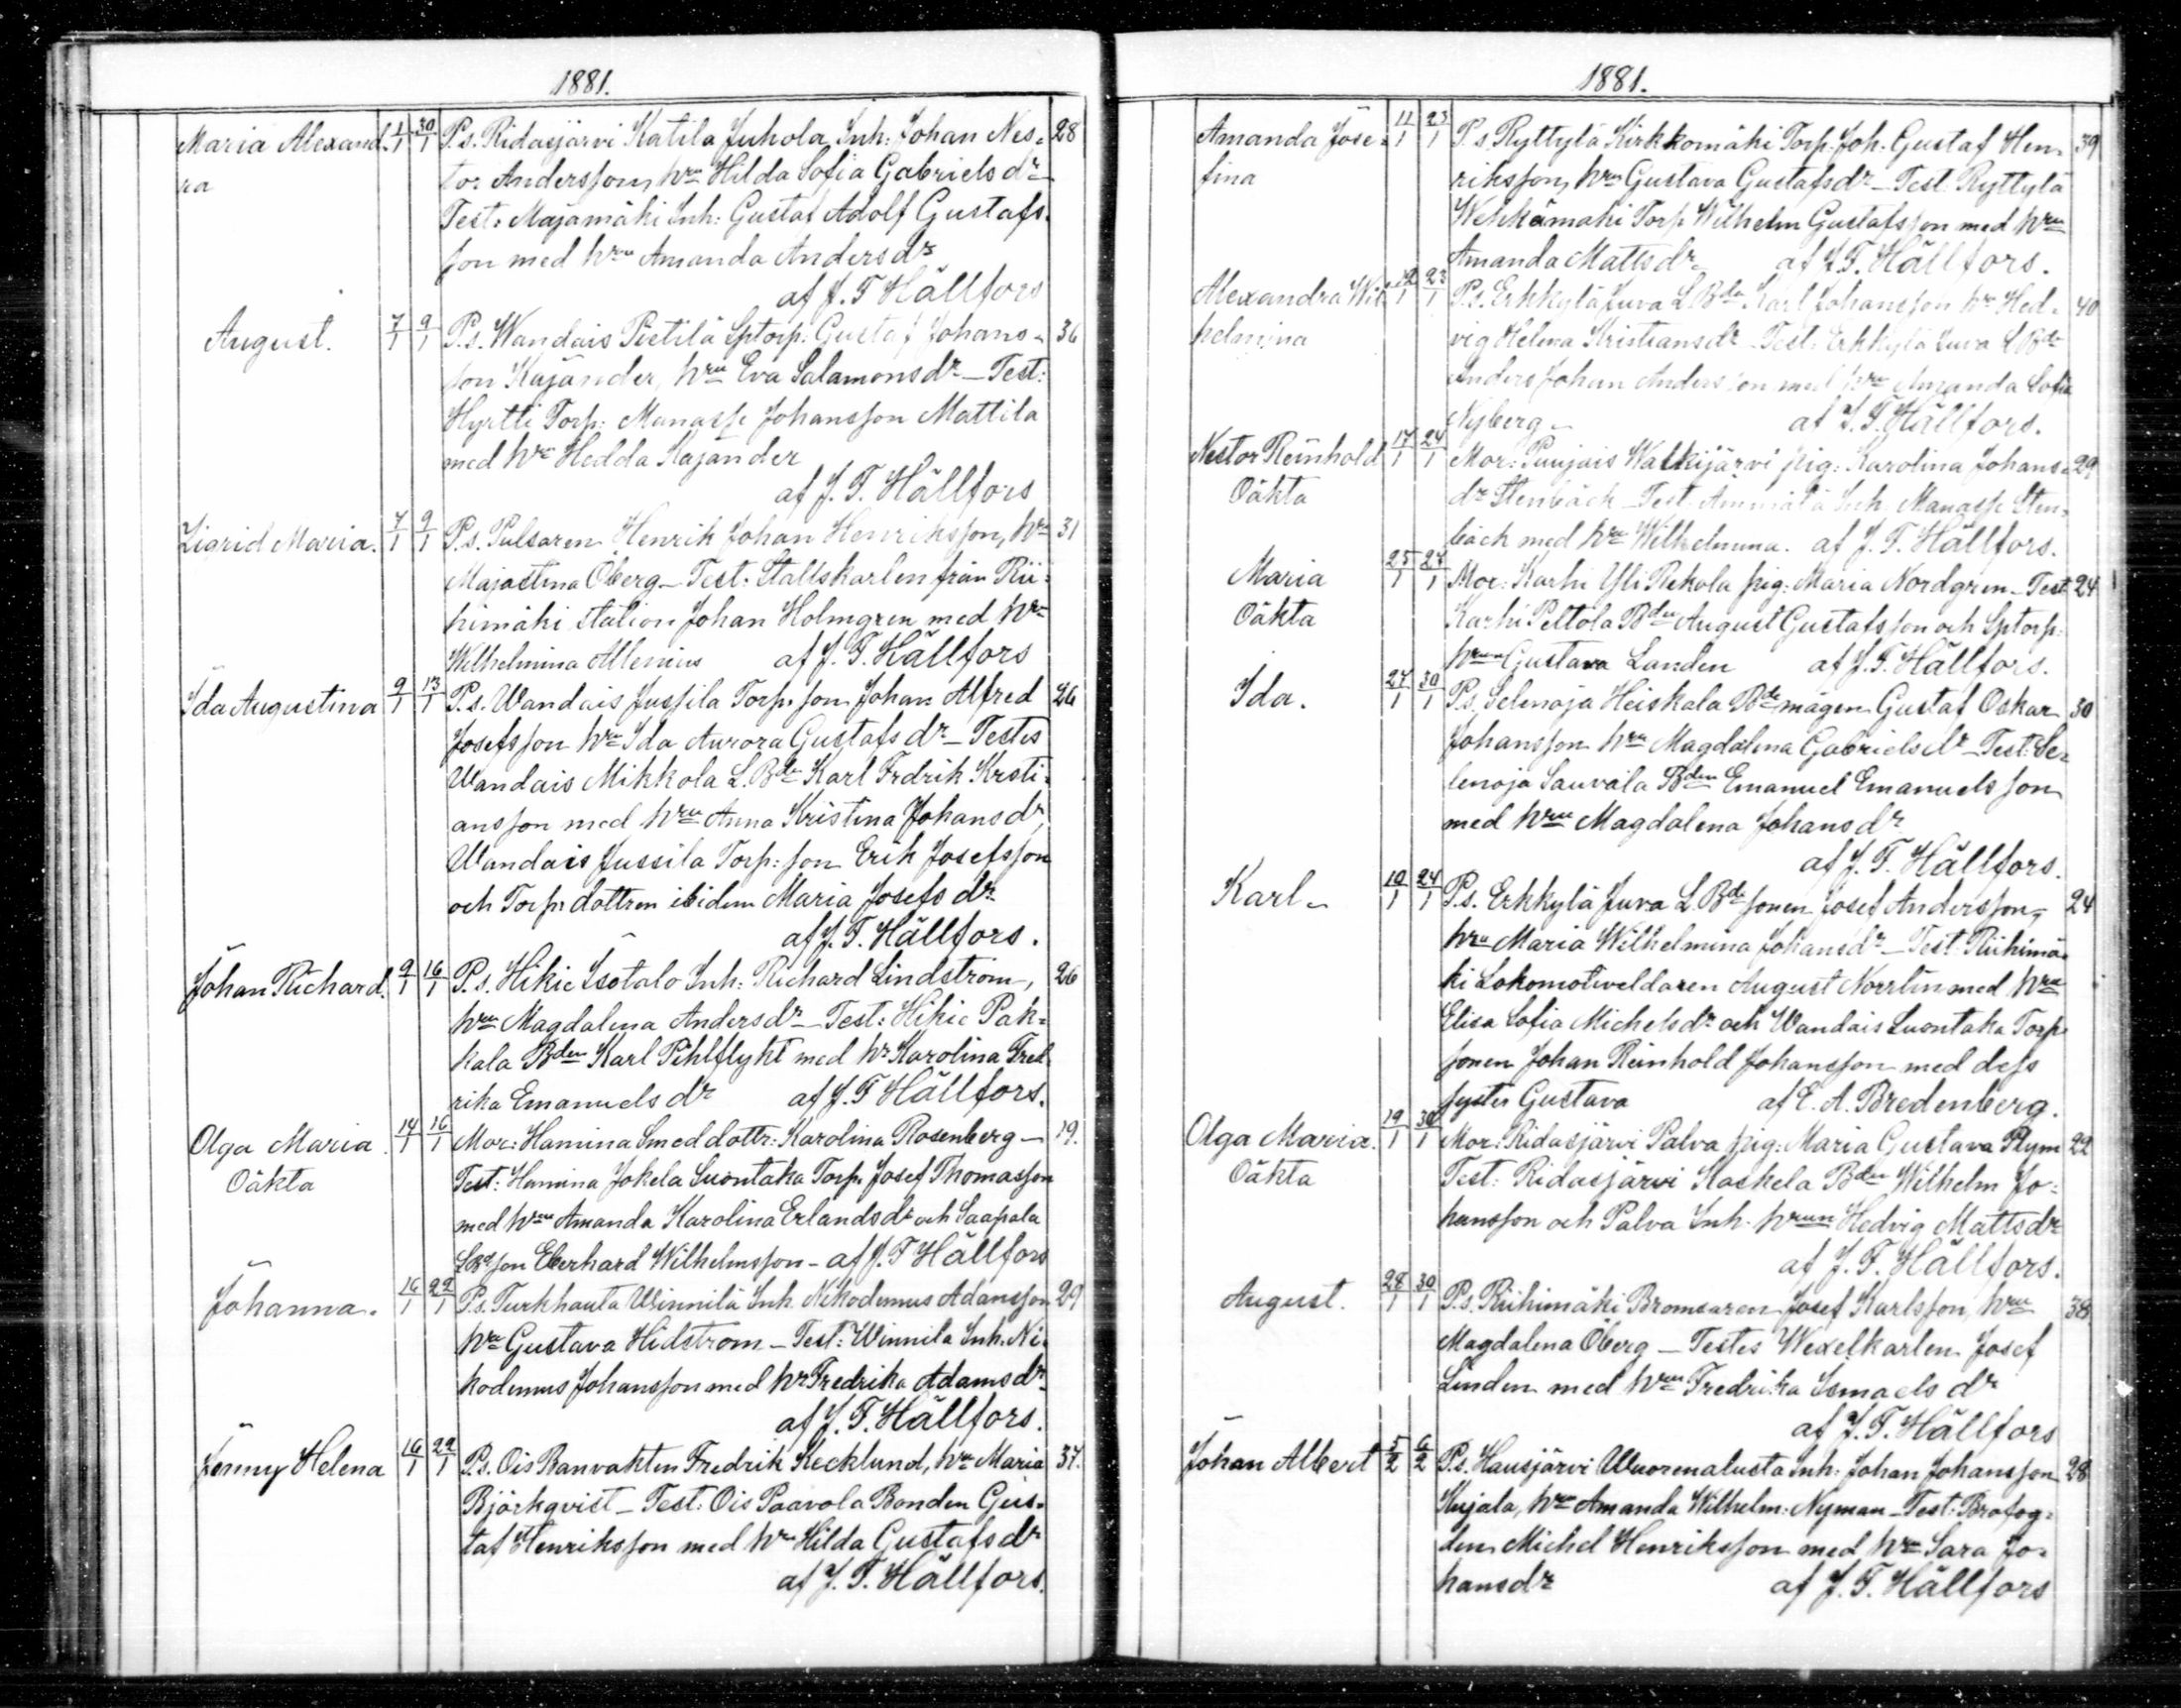 1881.
Maria Alexand- 1/1 30/1 P.s. Ridasjärvi Katila Juhola Inh: Johan Nes- 28
ra tor Andersson, hru Hilda Sofia Gabrielsdr
Test: Majamäki Inh: Gustaf Adolf Gustafs-
son med hru Amanda Andersdr
af J. F. Hällfors
August. 7/1 9/1 P.s. Wandais Pietilä Sptorp: Gustaf Johans- 36
son Kajander, hru Eva Salamonsdr – Test:
Hyrtti Torp: Manasse Johansson Mattila
med hru Hedda Kajander
af J. F. Hällfors
Zigrid Maria. 7/1 9/1 P.s. Pulsaren Henrik Johan Henriksson, hru 31
Majastina Öberg – Test: Stallskarlen från Rii-
himäki station Johan Holmgren med hru
Wilhelmina Allenius af J. F. Hällfors
Ida Augustina 9/1 13/1 P.s. Wandais Jussila Torp. son Johan Alfred 26
Josefsson hru Ida Aurora Gustafsdr – Testes
Wandais Mikkola L. Bden Karl Fredrik Kristi-
ansson med hru Anna Kristina Johansdr,
Wandais Jussila Torp: son Erik Josefsson
och Torp: dottren ibidem Maria Josefsdr
af J. F. Hällfors.
Johan Richard. 9/1 16/1 P.s. Hikie Isotalo Inh: Richard Lindström, 26
hru Magdalena Andersdr – Test: Hikie Pak-
kala Bden Karl Pihlflykt med hr Karolina Fred-
rika Emanuelsdr af J. F. Hällfors.
Olga Maria. 14/1 16/1 Mor: Hamina Smeddottr: Karolina Rosenberg – 19.
Oäkta Test: Hamina Jokela Luontaka Torp. Josef Thomasson
med hru Amanda Karolina Erlandsdr och Saapala
LBdson Eberhard Wilhelmsson – af J. F. Hällfors
Johanna. 16/1 22/1 P.s. Turkhauta Winnilä Inh. Nikodemus Adamsson 29
hru Gustava Hidström – Test: Winnila Inh. Ni-
kodemus Johansson med hr Fredrika Adamsdr
af J. F. Hällfors.
Jenny Helena 16/1 22/1 P.s. Ois Banvakten Fredrik Kecklund, hru Maria 37.
Björkqvist – Test: Ois Paavola Bonden Gus-
taf Henriksson med hru Hilda Gustafsdr
af J. F. Hällfors.
1881.
Amanda Jose- 11/1 23/1 P.s. Ryttylä Kirkkomäki Torp. Joh. Gustaf Hen- 39
fina riksson, hru Gustava Gustafsdr – Test. Ryttylä
Wehkämäki Torp Wilhelm Gustafsson med hru
Amanda Mattsdr. af J. F. Hällfors.
Alexandra Wil- 19/1 23/1 P.s. Erkkylä Juva L. Bden Karl Johansson hr Hed- 40
helmina vig Helena Kristiansdr – Test: Erkkylä Juva LBde
Anders Johan Andersson med hru Amanda Sofia
Nyberg – af J. F. Hällfors.
Nestor Reinhold 17/1 24/1 Mor: Puujais Walkijärvi pig: Karolina Johans- 29
Oäkta dr Stenbäck – Test. Inh. Manasse Sten-
bäck med hru Wilhelmina. af J. F. Hällfors.
Maria 25/1 27/1 Mor: Karhi Yli Rekola pig: Maria Nordgren – Test 24
Oäkta Karhi Peltola Bden August Gustafsson och Sptorp:
hrun Gustava Landen af J. F. Hällfors.
Ida. 27/1 30/1 P.s. Selenoja Heiskala Bde mågen Gustaf Oskar 30
Johansson hru Magdalena Gabrielsdr – Test. Se-
lenoja Sauvala Bden Emanuel Emanuelsson
med hru Magdalena Johansdr
af J. F. Hällfors.
Karl – 10/1 24/1 P.s. Erkkylä Juva L Bde sonen Josef Andersson, 24
hru Maria Wilhelmina Johansdr – Test. Riihimä-
ki Lokomotiveldaren August Norrlin med hru
Elisa Sofia Michelsdr och Wandais Luontaka Torp
sonen Johan Reinhold Johansson med dess
syster Gustava af E. A. Bredenberg.
Olga Maria. 19/1 30/1 Mor: Ridasjärvi Palva pig: Maria Gustava Plym 22
Oäkta Test: Ridasjärvi Kaskela Bden Wilhelm Jo-
hansson och Palva Inh. hrun Hedvig Mattsdr
af J. F. Hällfors.
August. 28/1 30/1 P.s. Riihimäki Bromsaren Josef Karlsson, hru 38
Magdalena Öberg – Testes Wexelkarlen Josef
Linden med hru Fredrika Ismaelsdr
af J. F. Hällfors
Johan Albert 5/2 6/2 P.s. Hausjärvi Wuorenalusta Inh: Johan Johansson 28
Kujala, hru Amanda Wilhelm: Nyman – Test: Brofog-
den Michel Henriksson med hru Sara Jo-
hansdr af J. F. Hällfors